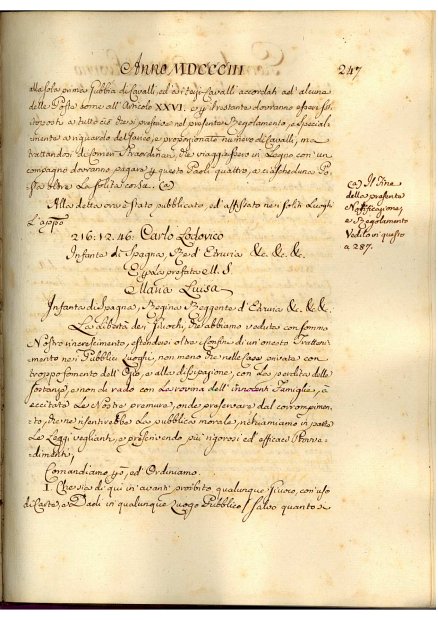 Anno MDCCCIII
247
alla sola prima Gabbia di Cavalli, ed ai terzi Cavalli accordati ad alcune
delle Poste come all'Articolo XXVI. e pel restante dovranno essere
a tutto ciò che si prescrive nel presente Regolamento, e special-
mente a riguardo del Carico, e proporzionato numero di Cavalli, ma
trattandosi di Corrieri Straordinari, che viaggiassero in Legno con un
compagno dovranno pagare per questo Paoli quattro a ciascheduna Po-
sta oltre la solita corsa. (a)
Alla detta ora è stato pubblicato, ed affisso nei soliti Luoghi
L'appo
216.12.46. Carlo Lodovico
Infante di Spagna, Re d'Etruria &c. &c. &c.
E per la prefata M. S.
Maria Luisa
Infanta di Spagna, Regina Reggente d'Etruria &c. &c. &c.
La libertà dei Giuochi, che abbiamo veduta con sommo
Nostro rincrescimento, estendersi oltre i Confini di un onesto Tratteni-
mento nei Pubblici Luoghi, non meno che nelle Case private con
troppo fomento dell'Ozio, e alla dissipazione, con la perdita delle
sostanze, e non di rado con la rovina dell'innocenti Famiglie,
eccitato le Nostre premure, onde preservare dal corrompimen-
to, che ne risentirebbe la pubblica morale, richiamiamo in parte
le Leggi veglianti, e prescrivendo più rigorosi ed efficaci Provve-
dimenti;
Comandiamo per ciò, ed Ordiniamo.
I. Che sia di qui in avanti proibito qualunque Giuoco, con uso
di Carte, e Dadi in qualunque Luogo Pubblico / salvo quanto
(a) Il fine
della presente
Notificazione,
e Regolamento
Vedilo in questo
a 287.